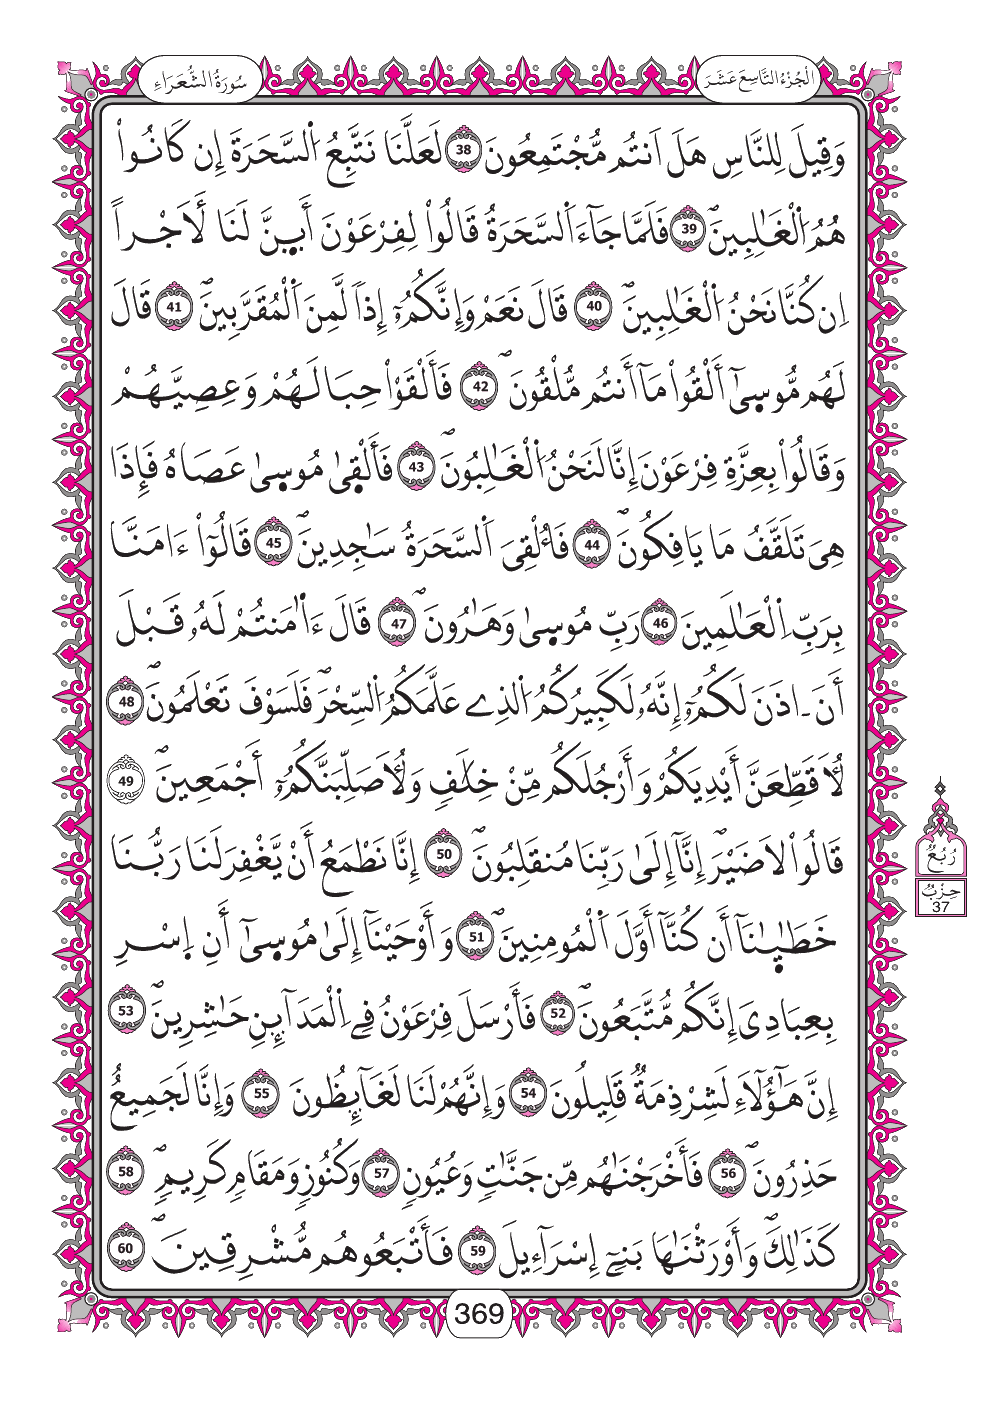 سُورَةُ الشُّعَرَاءِ
الْجُزْءُ التَّاسِعَ عَشَرَ
وَقِيلَ لِلنَّاسِ هَلَ اَنتُم مُّجْتَمِعُونَ 38 لَعَلَّنَا نَتَّبِعُ اُ۬لسَّحَرَةَ إِن كَانُواْ
هُمُ اُ۬لْغَٰلِبِينَۖ 39 فَلَمَّا جَآءَ اَ۬لسَّحَرَةُ قَالُواْ لِفِرْعَوْنَ أَي۪نَّ لَنَا لَأَجْراً
اِن كُنَّا نَحْنُ اُ۬لْغَٰلِبِينَۖ 40 قَالَ نَعَمْ وَإِنَّكُمُۥٓ إِذاٗ لَّمِنَ اَ۬لْمُقَرَّبِينَۖ 41 قَالَ
لَهُم مُّوس۪ىٰٓ أَلْقُواْ مَآ أَنتُم مُّلْقُونَۖ 42 فَأَلْقَوْاْ حِبَالَهُمْ وَعِصِيَّهُمْ
وَقَالُواْ بِعِزَّةِ فِرْعَوْنَ إِنَّا لَنَحْنُ اُ۬لْغَٰلِبُونَۖ 43 فَأَلْق۪ىٰ مُوس۪ىٰ عَصَاهُ فَإِذَا
هِىَ تَلَقَّفُ مَا يَافِكُونَۖ 44 فَأُلْقِىَ اَ۬لسَّحَرَةُ سَٰجِدِينَۖ 45 قَالُوٓاْ ءَامَنَّا
بِرَبِّ اِ۬لْعَٰلَمِينَ 46 رَبِّ مُوس۪ىٰ وَهَٰرُونَۖ 47 قَالَ ءَاٰ۬مَنتُمْ لَهُۥ قَبْلَ
أَنَ ـ اذَنَ لَكُمُۥٓ إِنَّهُۥ لَكَبِيرُكُمُ اُ۬لذِے عَلَّمَكُمُ اُ۬لسِّحْرَۖ فَلَسَوْفَ تَعْلَمُونَۖ 48
لَأُقَطِّعَنَّ أَيْدِيَكُمْ وَأَرْجُلَكُم مِّنْ خِلَٰفٖ وَلَأُصَلِّبَنَّكُمُۥٓ أَجْمَعِينَۖ 49
قَالُواْ لَا ضَيْرَۖ إِنَّآ إِلَىٰ رَبِّنَا مُنقَلِبُونَۖ 50 إِنَّا نَطْمَعُ أَنْ يَّغْفِرَ لَنَا رَبُّنَا
خَطَٰيٰ۪نَآ أَن كُنَّآ أَوَّلَ اَ۬لْمُومِنِينَۖ 51 وَأَوْحَيْنَآ إِلَىٰ مُوس۪ىٰٓ أَنِ اِسْرِ
بِعِبَادِىَ إِنَّكُم مُّتَّبَعُونَۖ 52 فَأَرْسَلَ فِرْعَوْنُ فِے اِ۬لْمَدَآئِنِ حَٰشِرِينَۖ 53
إِنَّ هَٰٓؤُلَآءِ لَشِرْذِمَةٞ قَلِيلُونَ 54 وَإِنَّهُمْ لَنَا لَغَآئِظُونَ 55 وَإِنَّا لَجَمِيعٌ
حَذِرُونَۖ 56 فَأَخْرَجْنَٰهُم مِّن جَنَّٰتٖ وَعُيُونٖ 57 وَكُنُوزٖ وَمَقَامٖ كَرِيمٖۖ 58
كَذَٰلِكَۖ وَأَوْرَثْنَٰهَا بَنِےٓ إِسْرَآءِيلَ 59 فَأَتْبَعُوهُم مُّشْرِقِينَۖ 60
رُبُعٌ
حِزْبُ
37
369